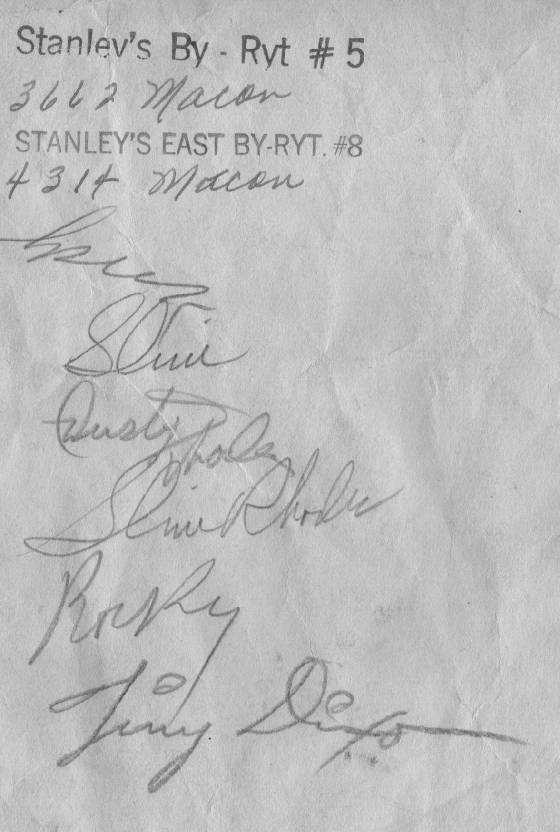 Stanley's By - Ryt # 5
3662 Macon
STANLEY'S EAST BY-RYT. #8
4314 Macon
Slim
Dusty Rhodes
Slim Rhodes
Rocky
Tiny Dixon